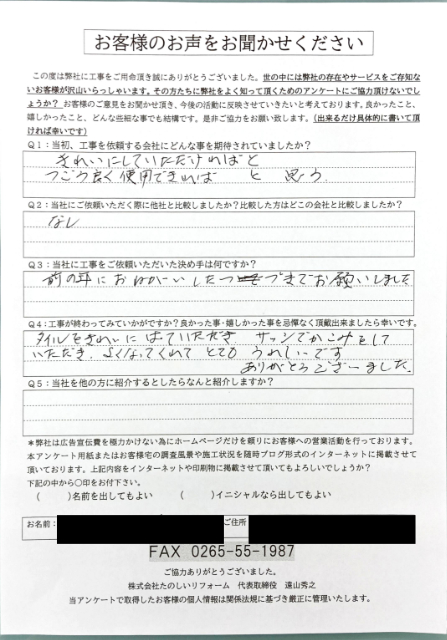 お客様のお声をお聞かせください
この度は弊社に工事をご用命頂き誠にありがとうございました。世の中には弊社の存在やサービスをご存知な
いお客様が沢山いらっしゃいます。その方たちに弊社をよく知って頂くためのアンケートにご協力頂けないでし
ょうか？ お客様のご意見をお聞かせ頂き、今後の活動に反映させていきたいと考えております。良かったこと、
嬉しかったこと、どんな些細な事でも結構です。是非ご協力をお願い致します。（出来るだけ具体的に書いて頂
ければ幸いです）
Q1：当初、工事を依頼する会社にどんな事を期待されていましたか？
きれいにしていただければと
つごう良く使用できれば と 思う
Q2：当社にご依頼いただく際に他社と比較しましたか？比較した方はどこの会社と比較しましたか？
なし
Q3：当社に工事をご依頼いただいた決め手は何ですか？
前の年におねがいしたつ づきでお願いしました
Q4：工事が終わってみていかがですか？良かった事・嬉しかった事を忌憚なく頂戴出来ましたら幸いです。
タイルをきれいにはっていただき サッシでかこみをして
いただき、よくなってくれて とても うれしいです
ありがとうございました。
Q5：当社を他の方に紹介するとしたらなんと紹介しますか？
＊弊社は広告宣伝費を極力かけない為にホームページだけを頼りにお客様への営業活動を行っております。
本アンケート用紙またはお客様宅の調査風景や施工状況を随時ブログ形式のインターネットに掲載させて
頂いております。上記内容をインターネットや印刷物に掲載させて頂いてもよろしいでしょうか？
下記の中から〇印をお付下さい。
（　　）名前を出してもよい　（　　）イニシャルなら出してもよい
お名前： ご住所
FAX 0265-55-1987
ご協力ありがとうございました。
株式会社たのしいリフォーム 代表取締役 遠山秀之
当アンケートで取得したお客様の個人情報は関係法規に基づき厳正に管理いたします。